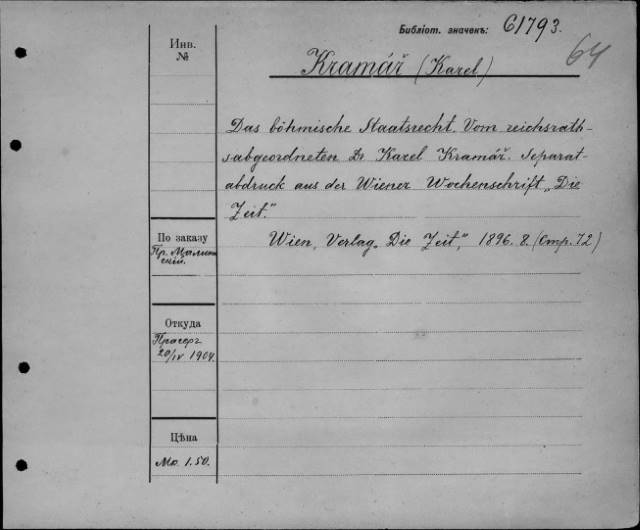 Библіот. значекъ: 61793.
64
Инв.
№
Kramář (Karel)
Das böhmische Staatsrecht. Vom reichsrath-
sabgeordneten Dr Karel Kramář. Separat-
abdruck aus der Wiener Wochenschrift „Die
Zeit."
Wien, Verlag „Die Zeit", 1896. 8. (Стр. 72)
По заказу
Пр. Малин
скій.
Откуда
Прагерг
20/IV 1904.
Цѣна
Мо. 1.50.